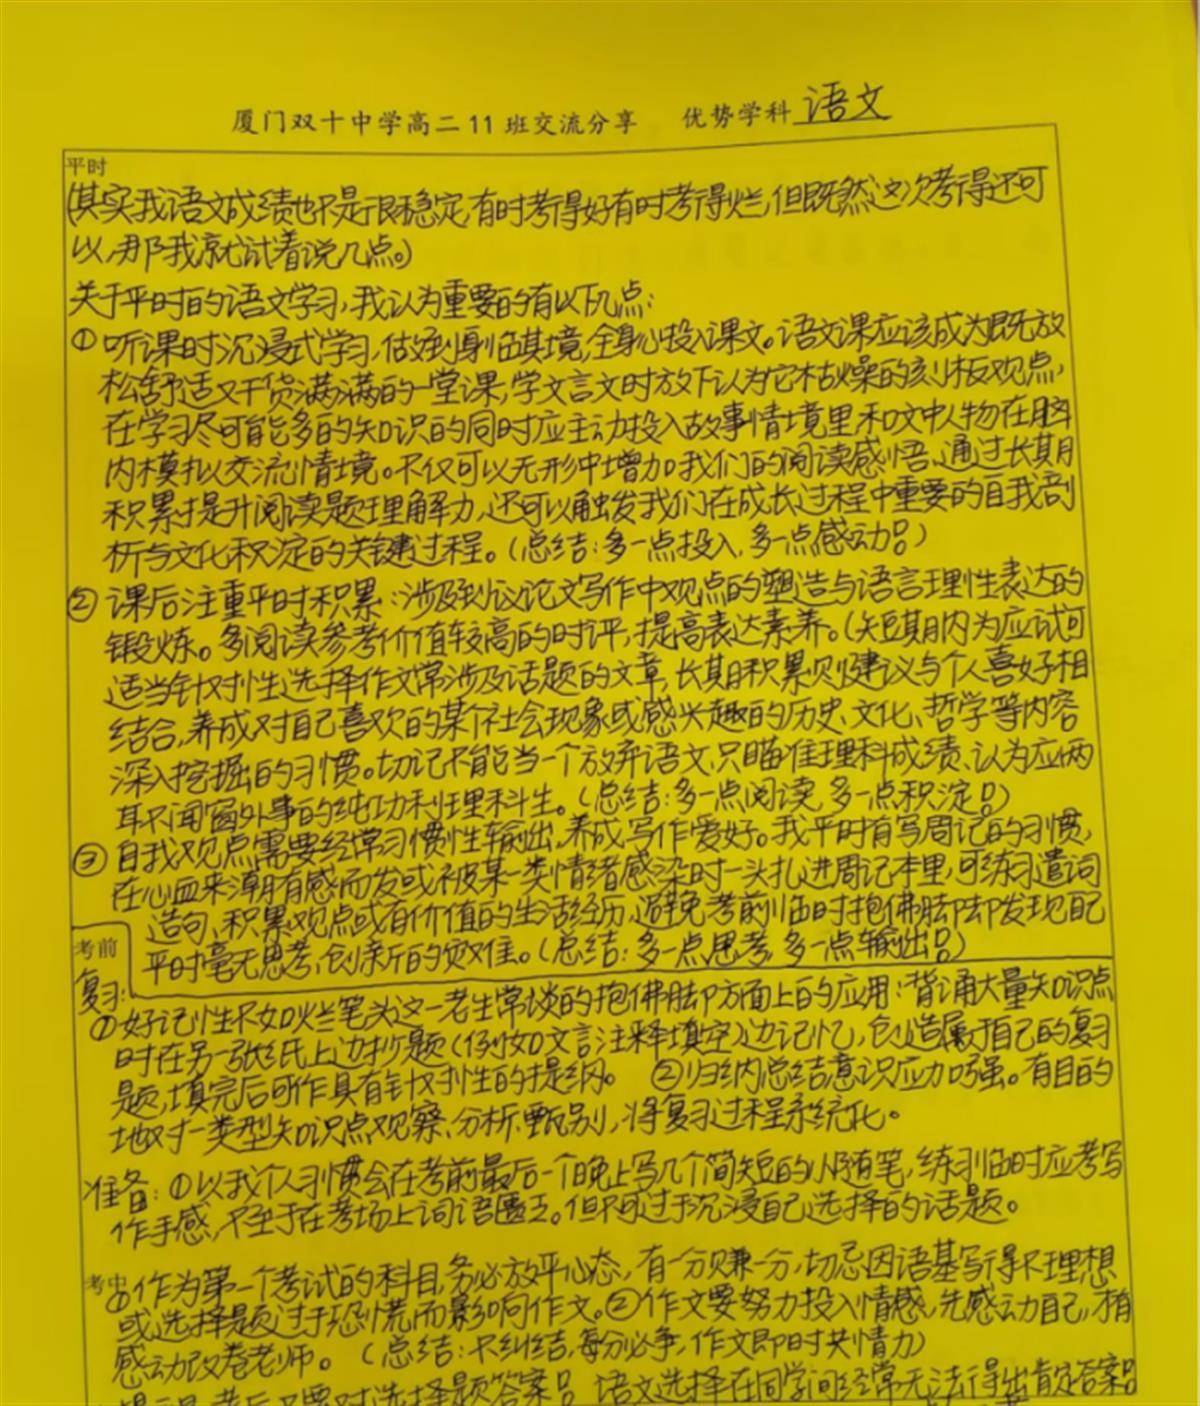 厦门双十中学高二11班交流分享 优势学科 语文
平时
(其实我语文成绩也不是很稳定,有时考得好有时考得烂,但既然这次考得还可
以,那我就试着说几点。)
关于平时的语文学习,我认为重要的有以下几点:
①听课时沉浸式学习,做到身临其境,全身心投入课文。语文课应该成为既放
松舒适又干货满满的一堂课,学文言文时放下认为它枯燥的刻板观点,
在学习尽可能多的知识的同时应主动投入故事情境里和文中人物在脑
内模拟交流情境。不仅可以无形中增加我们的阅读感悟、通过长期
积累提升阅读题理解力,还可以触发我们在成长过程中重要的自我剖
析与文化积淀的关键过程。(总结:多一点投入,多一点感动!)
②课后注重平时积累:涉及到议论文写作中观点的塑造与语言理性表达的
锻炼。多阅读参考价值较高的时评,提高表达素养。(短期内为应试可
适当针对性选择作文常涉及话题的文章,长期积累则建议与个人喜好相
结合,养成对自己喜欢的某个社会现象或感兴趣的历史、文化、哲学等内容
深入挖掘的习惯。切记不能当一个放弃语文,只瞄准理科成绩、认为应两
耳不闻窗外事的纯功利理科生。(总结:多一点阅读,多一点积淀!)
③自我观点需要经常习惯性输出,养成写作爱好。我平时有写周记的习惯,
在心血来潮有感而发或被某一类情绪感染时一头扎进周记本里,可练习遣词
造句、积累观点或有价值的生活经历,避免考前临时抱佛脚却发现自己
平时毫无思考、创新的灾难。(总结:多一点思考,多一点输出!)
考前
复习:
①好记性不如烂笔头这一老生常谈的抱佛脚方面上的应用:背诵大量知识点
时在另一张纸上边抄题(例如文言注释填空)边记忆,创造属于自己的复习
题,填完后可作具有针对性的提纲。 ②归纳总结意识应加强。有目的
地对一类型知识点观察、分析、甄别,将复习过程系统化。
准备:①以我个人习惯会在考前最后一个晚上写几个简短的小随笔,练习临时应考写
作手感,不至于在考场上词语匮乏。但不可过于沉浸自己选择的话题。
考中
①作为第一个考试的科目,务必放平心态,有一分赚一分,切忌因语基写得不理想
或选择题过于恐慌而影响作文。②作文要努力投入情感,先感动自己,才有
感动改卷老师。(总结:不纠结,每分必争,作文即时共情力)
考后不要对选择题答案!语文选择在同学间经常无法得出肯定答案!